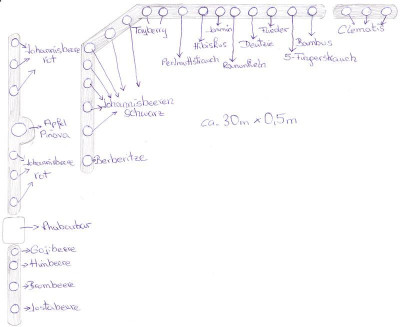 Johannisbeere
rot
Apfel
Pinova
Johannisbeere
rot
Rhabarbar
Gojibeere
Himbeere
Brombeere
Jostabeere
Tayberry
Perlmuttstrauch
Hibiskus
Jasmin
Ranunkeln
Deutzie
Flieder
5-Fingerstrauch
Bambus
Clematis
Johannisbeeren
Schwarz
Berberitze
ca. 30m x 0,5m